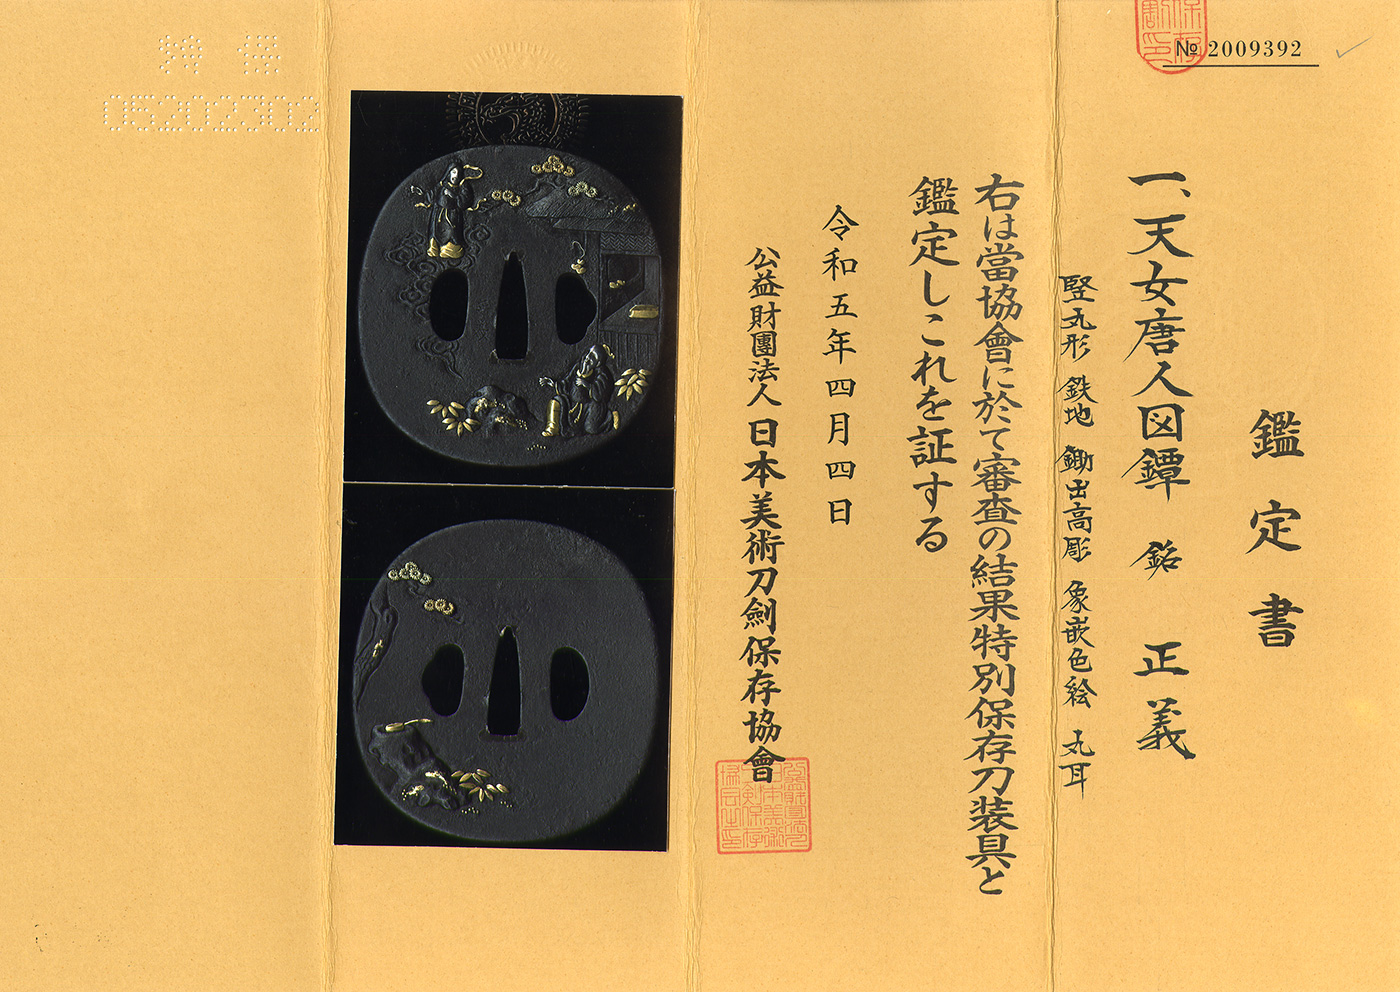 № 2009392
鑑定書
一、天女唐人図鐔 銘 正義
竪丸形 鉄地 鋤出高彫 象嵌色絵 丸耳
右は當協會に於て審査の結果特別保存刀装具と
鑑定しこれを証する
令和五年四月四日
公益財團法人 日本美術刀劍保存協會
05202302